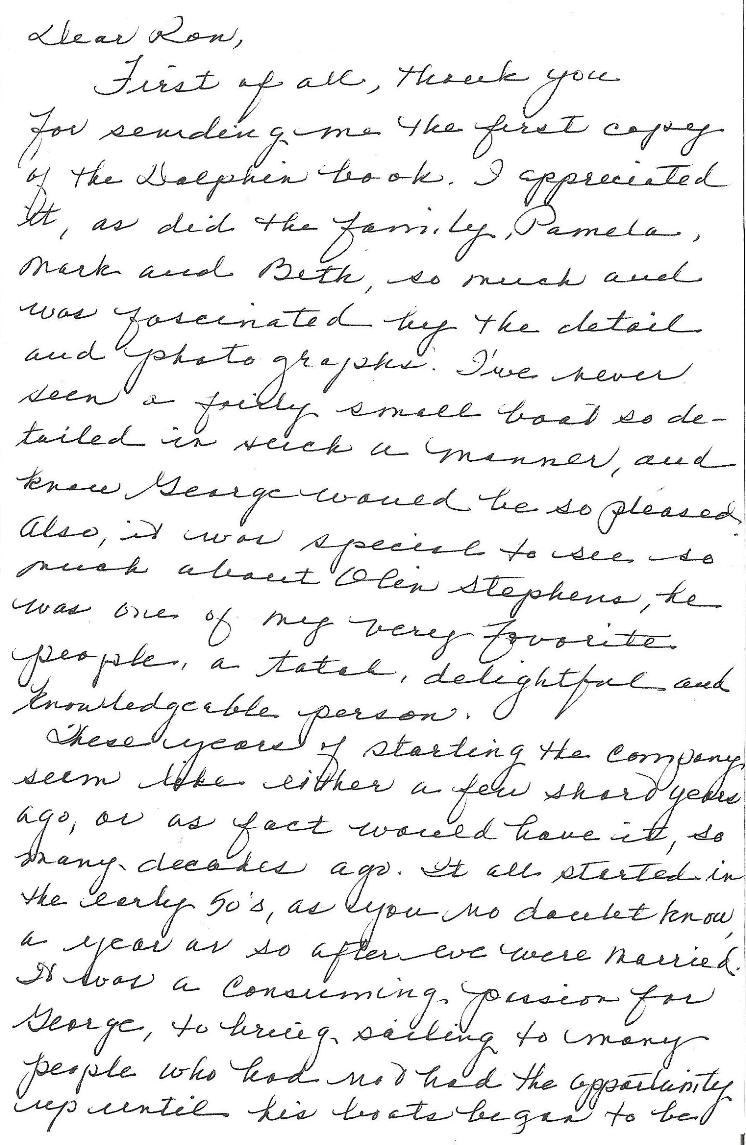 Dear Ron,
First of all, thank you
for sending me the first copy
of the Dolphin book. I appreciated
it, as did the family, Pamela,
Mark and Beth, so much and
was fascinated by the detail
and photographs. I've never
seen a fairly small boat so de-
tailed in such a manner, and
know George would be so pleased.
Also, it was special to see so
much about Olin Stephens, he
was one of my very favorite
people, a total, delightful and
knowledgeable person.
These years of starting the company
seem like either a few short years
ago, or as fact would have it, so
many decades ago. It all started in
the early 50's, as you no doubt know,
a year or so after we were married.
It was a consuming passion for
George, to bring sailing to many
people who had not had the opportunity
up until his boats began to be